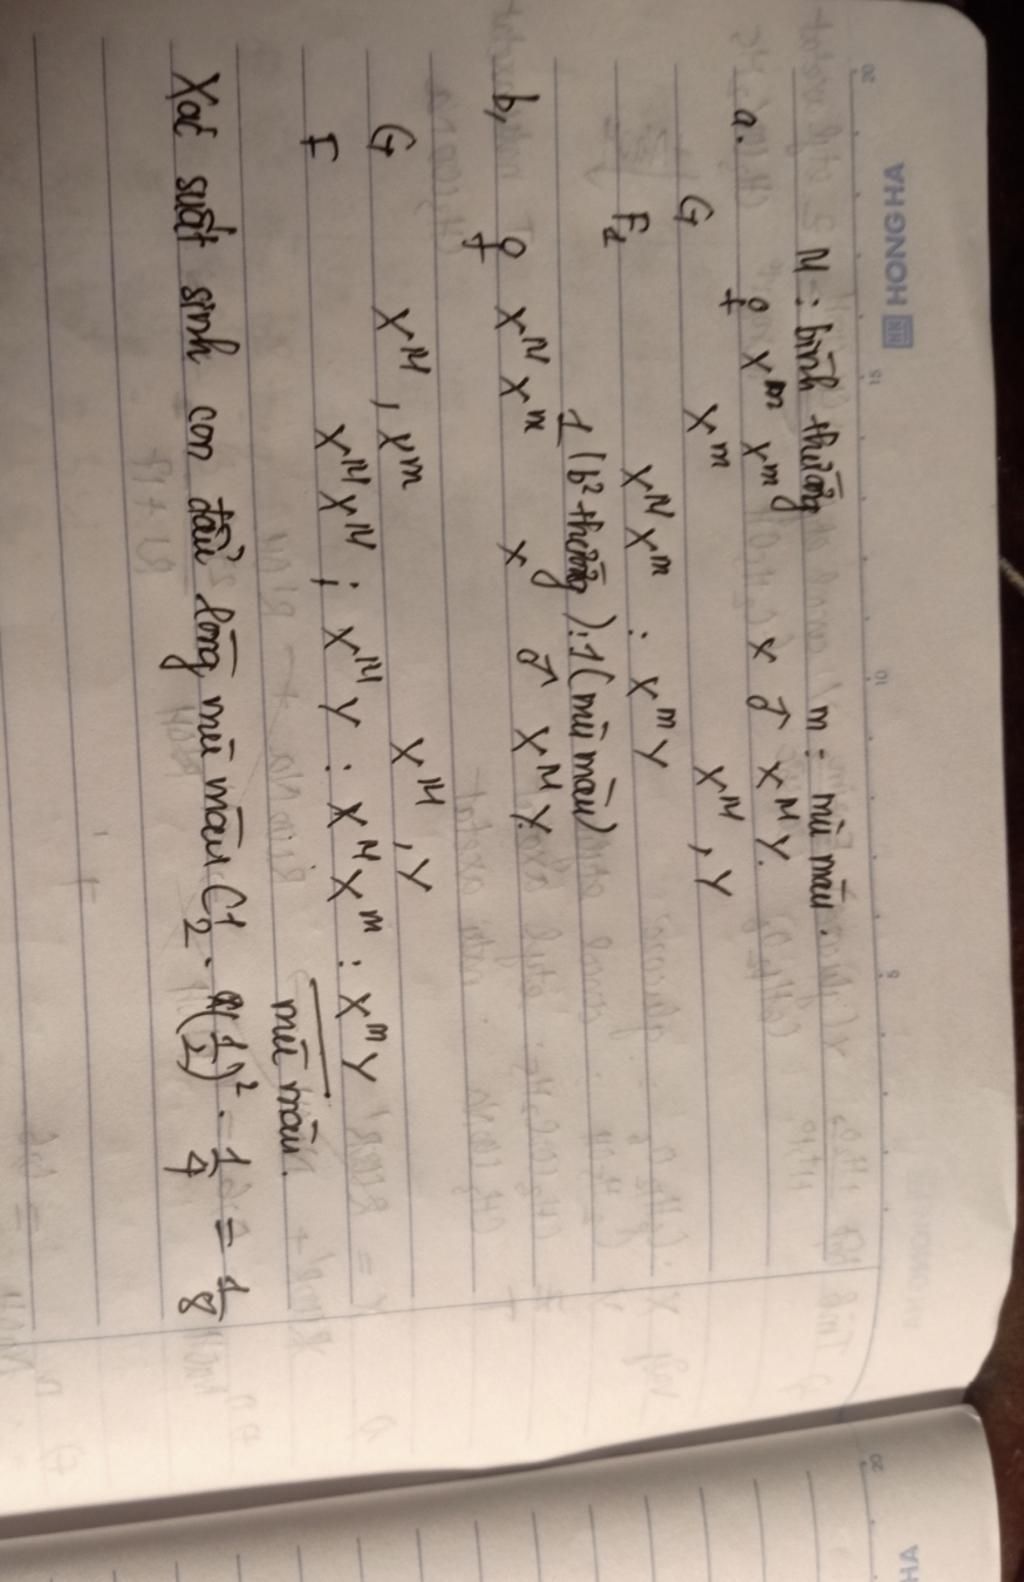 HONG HA
M : bình thường / m : mù màu.
a. ♀ Xᵐ Xᵐ x ♂ Xᴹ Y.
G Xᵐ Xᴹ , Y
F₁ Xᴹ Xᵐ : Xᵐ Y
1 (b² thường) : 1 (mù màu)
b, ♀ Xᴹ Xᵐ x ♂ Xᴹ Y.
G Xᴹ , Xᵐ Xᴹ , Y
F Xᴹ Xᴹ : Xᴹ Y : Xᴹ Xᵐ : Xᵐ Y
mù màu.
Xác suất sinh con đầu lòng mù màu C¹₂ . (1/2)² . 1/4 = 1/8